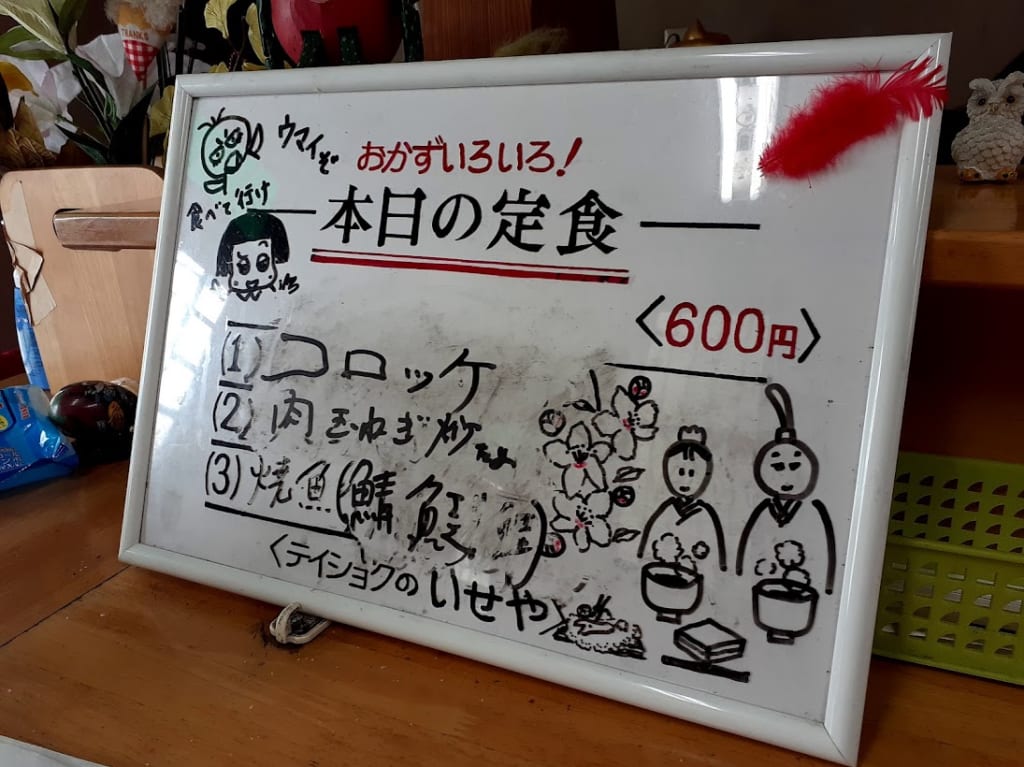 THANKS
ウマイぞ
おかずいろいろ!
食べて行け
本日の定食
〈600円〉
(1) コロッケ
(2) 肉玉ねぎ炒
(3) 焼魚(鯖
〈テイショクのいせや〉